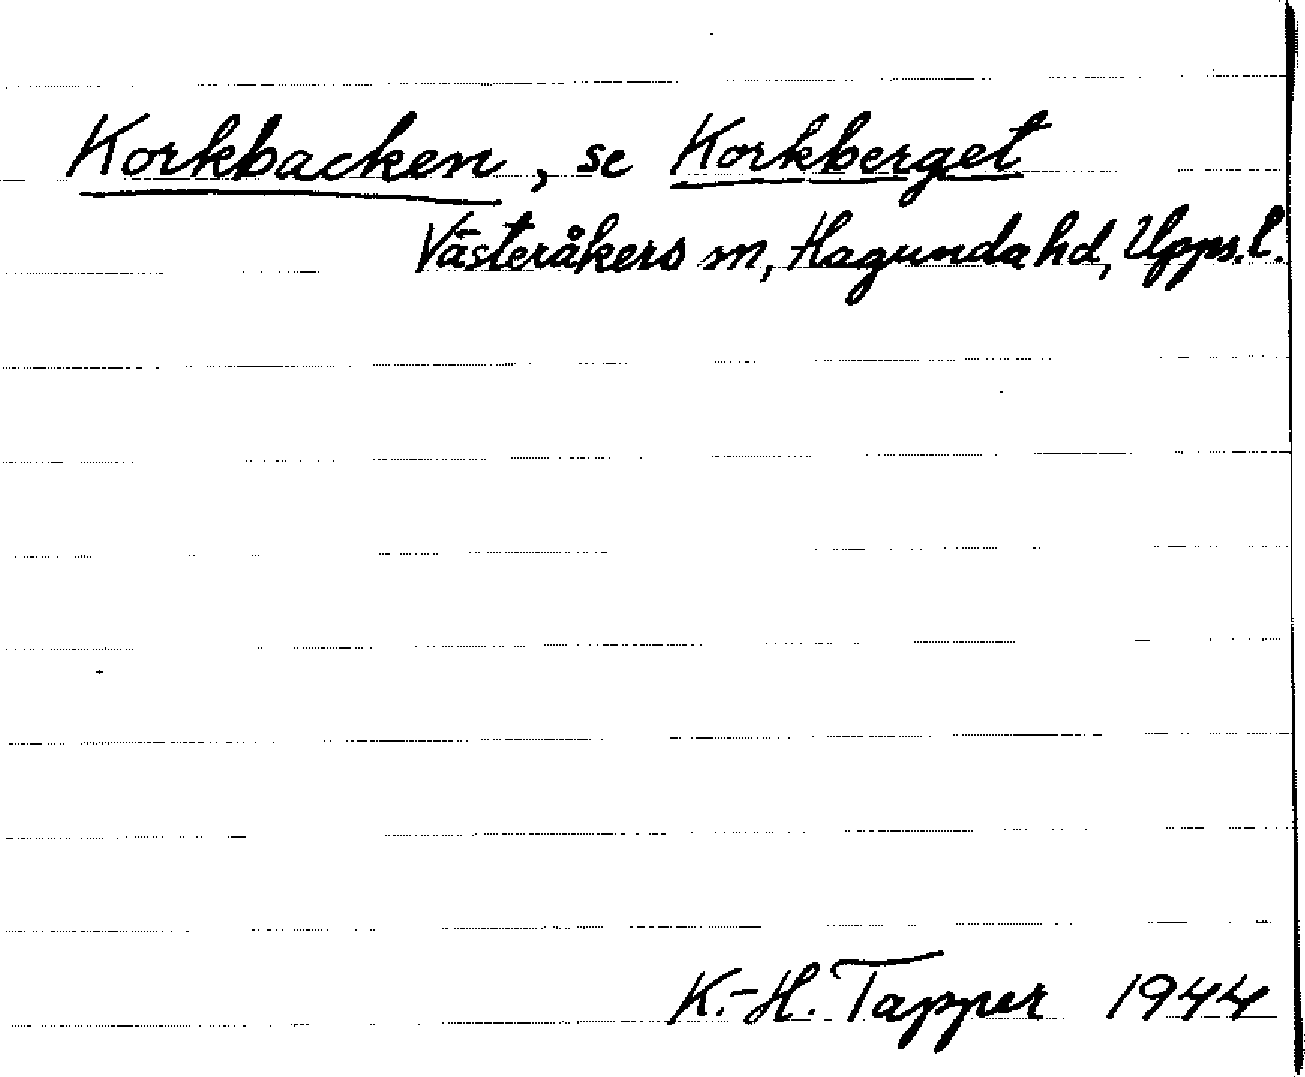 Korkbacken, se Korkberget
Västeråkers sn, Hagunda hd, Upps. l.
K.-H. Tapper 1944